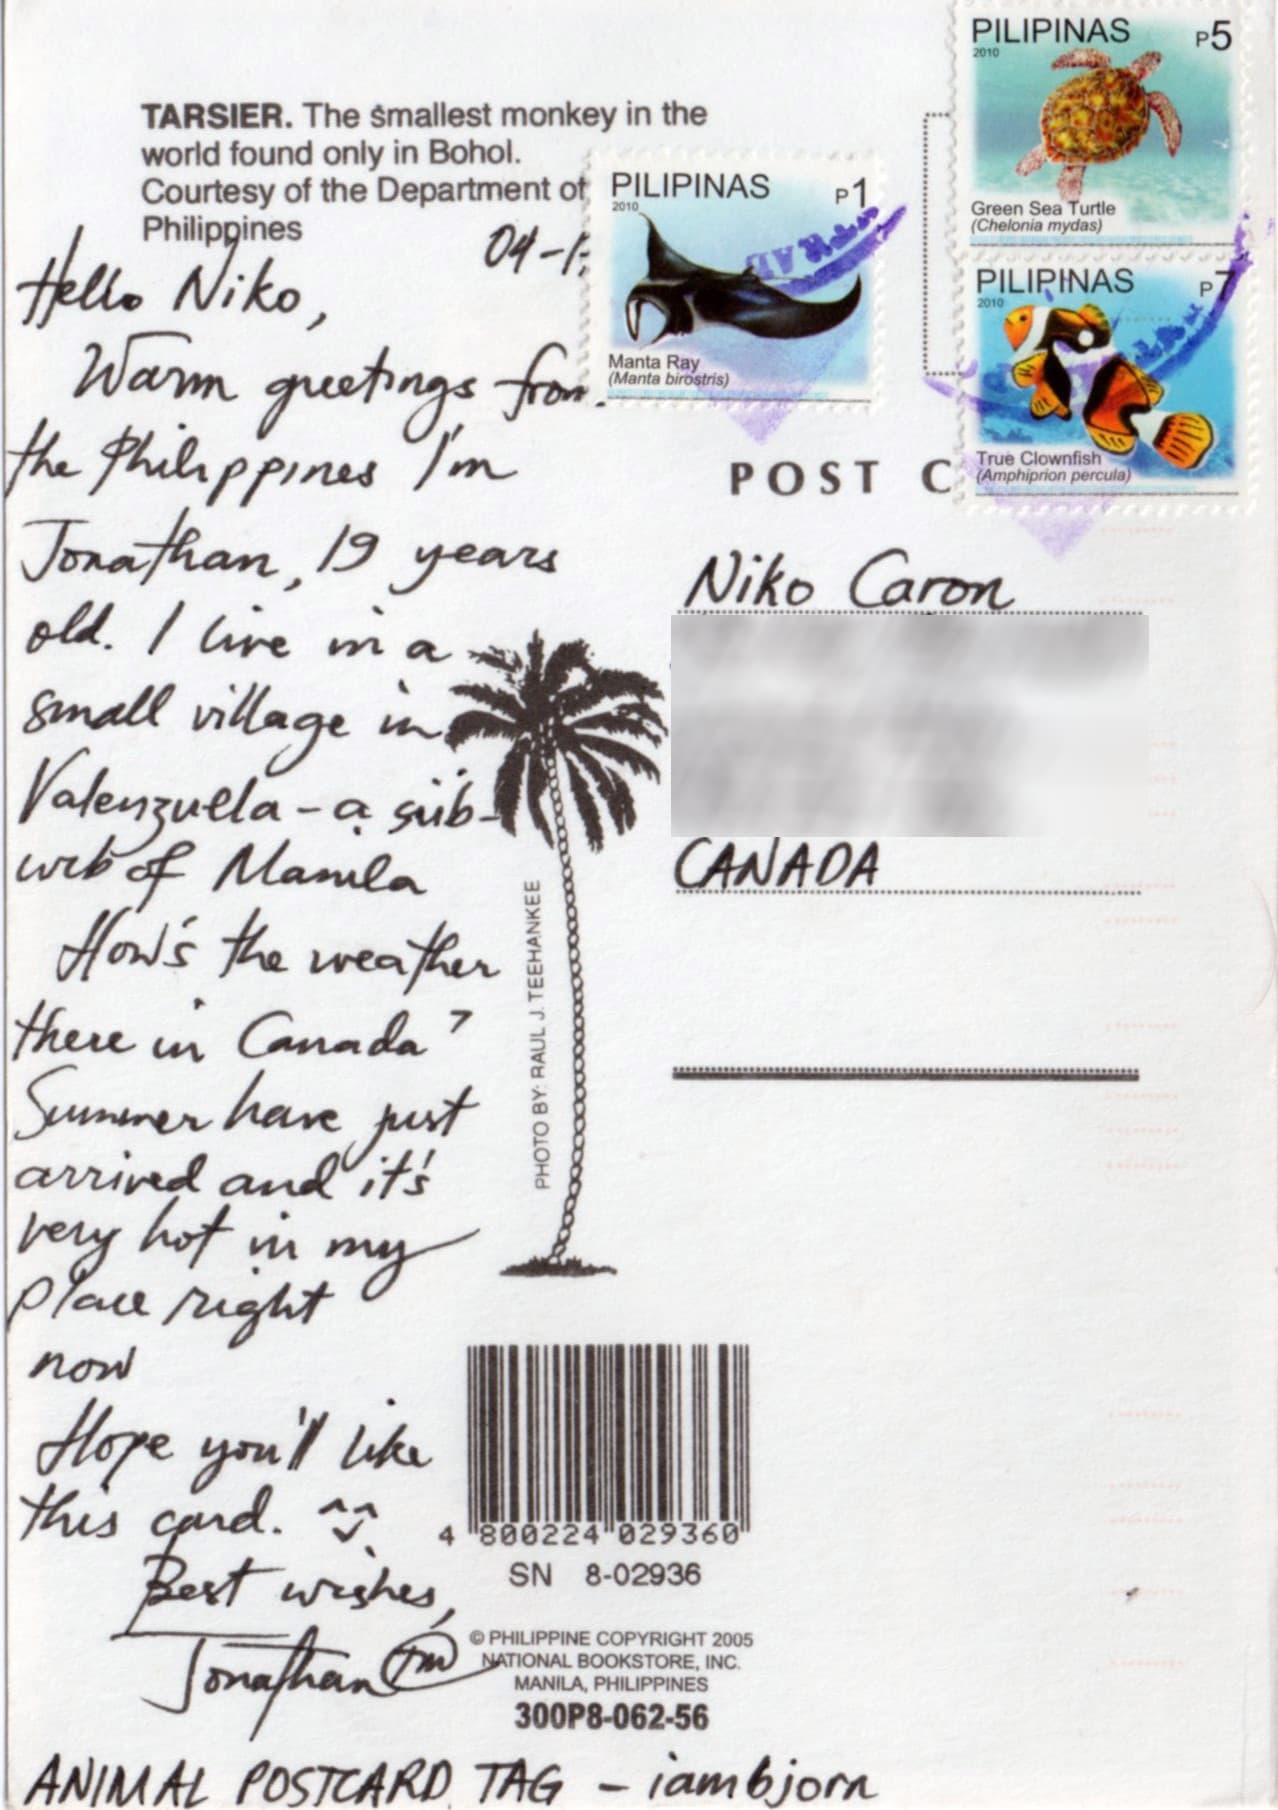 TARSIER. The smallest monkey in the
world found only in Bohol.
Courtesy of the Department of
Philippines
04-1
Hello Niko,
Warm greetings from
the Philippines I'm
Jonathan, 19 years
old. I live in a
small village in
Valenzuela - a sub-
urb of Manila
How's the weather
there in Canada?
Summer have just
arrived and it's
very hot in my
place right
now
Hope you'll like
this card. ^^
Best wishes,
Jonathan TM
ANIMAL POSTCARD TAG - iambjorn
PILIPINAS P1
2010
Manta Ray
(Manta birostris)
PILIPINAS P5
2010
Green Sea Turtle
(Chelonia mydas)
PILIPINAS P7
2010
True Clownfish
(Amphiprion percula)
POST C
Niko Caron
CANADA
PHOTO BY: RAUL J. TEEHANKEE
4 800224 029360
SN 8-02936
© PHILIPPINE COPYRIGHT 2005
NATIONAL BOOKSTORE, INC.
MANILA, PHILIPPINES
300P8-062-56